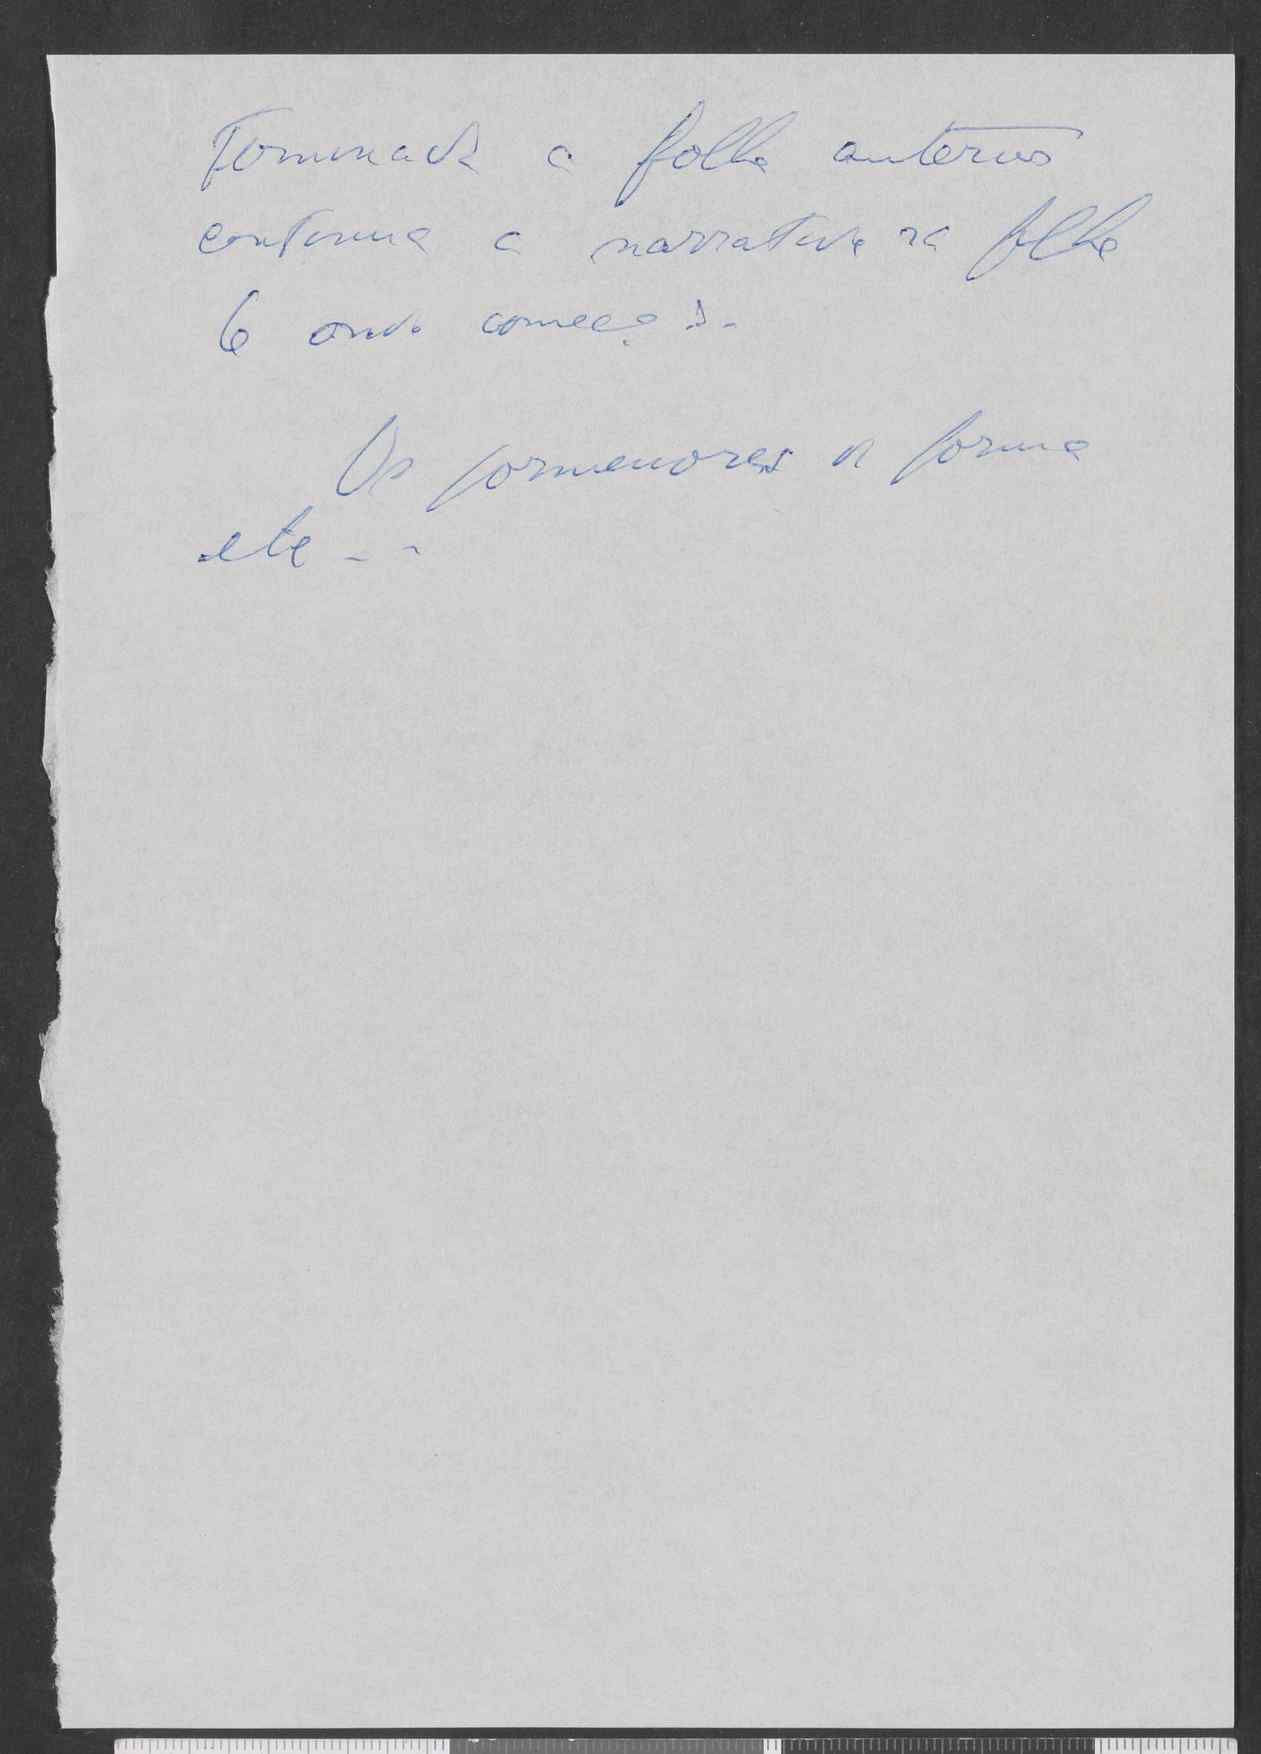 Terminada a folha anterior
continua a narrativa na folha
6 onde começa:
Os pormenores a forma
etc - -